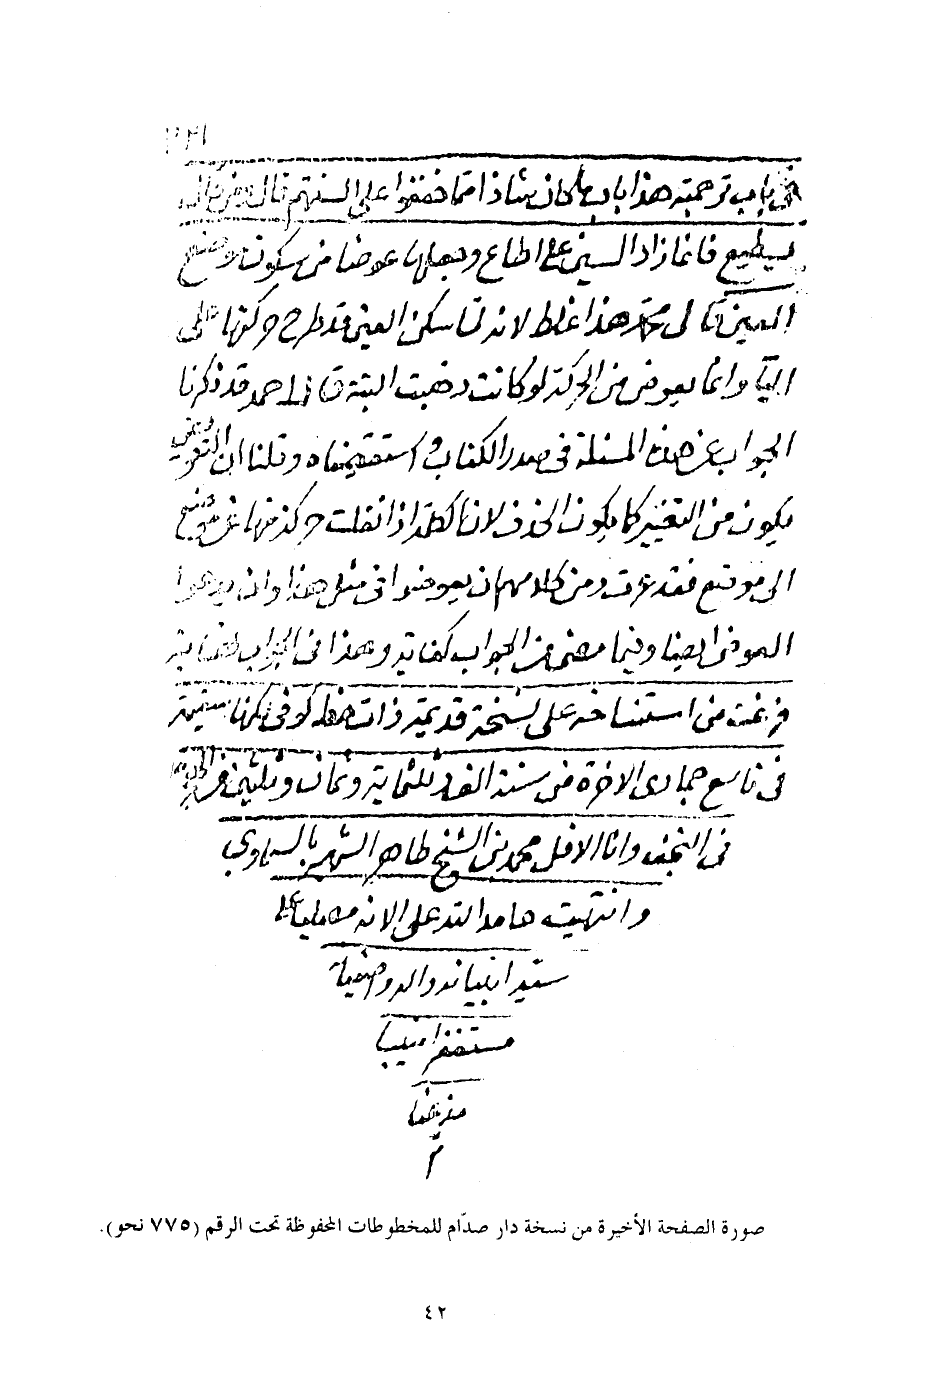 في باب ترجمته هذا باب ما كان شاذا مما خففوا على السنتهم قال
يسطيع فانما زاد السين على اطاع وجعلها عوضا من سكون موضع
العين قال محمد هذا غلط لانه لما سكن العين قد طرح حركتها على
وانما يعوض من الحركة لو كانت ذهبت البتة قال احمد قد ذكرنا
الجواب عن هذه المسئلة في صدر الكتاب واستقصيناه وقلنا ان التعويض
يكون من التغيير كما يكون الحذف لان الكلمة اذا نقلت حركة منها عن موضع
الى موضع فقد غيرت ومن كلامهم ان يعوضوا في مثل هذا وان
العوض ايضا وفيما مضى من الجواب كفاية وهذا في الجواب
فرغت من استنساخه على نسخة قديمة ذات خط كوفي لكنها سقيمة
في تاسع جمادى الاخرة من سنة الف وثلثماية وثمان وثلثين
في النجف وانا الاقل محمد بن الشيخ طاهر الشهير بالسماوي
وانتهيته حامدا لله على الائه مصليا على
سيد انبيائه واله وصفيه
مستغفرا منيبا
صورة الصفحة الأخيرة من نسخة دار صدّام للمخطوطات المحفوظة تحت الرقم (٧٧٥ نحو).
٤٢